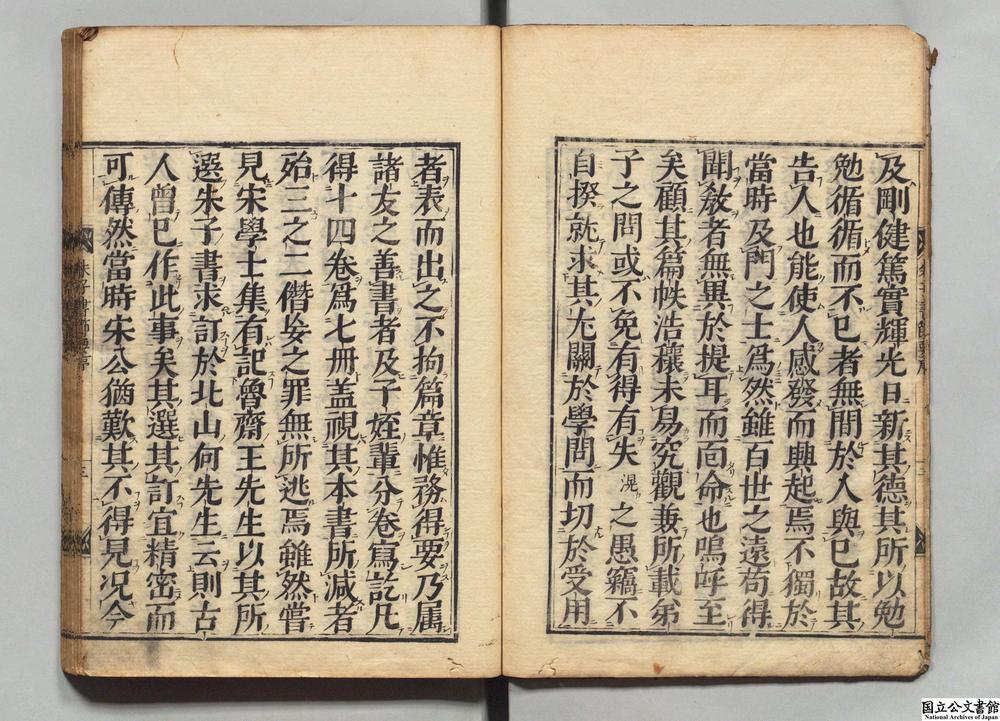 及剛健篤實輝光日新其德其所以勉
勉循循而不已者無間於人與已故其
告人也能使人感發而興起焉不獨於
當時及門之士爲然雖百世之遠苟得
聞敎者無異於提耳而面命也嗚呼至
矣顧其篇帙浩穰未易究觀兼所載弟
子之問或不免有得有失滉之愚竊不
自揆就求其尤關於學問而切於受用
者表而出之不拘篇章惟務得要乃属
諸友之善書者及子姪輩分卷寫訖凡
得十四卷爲七冊盖視其本書所減者
殆三之二僭妄之罪無所逃焉雖然嘗
見宋學士集有記魯齋王先生以其所
選朱子書求訂於北山何先生云則古
人曾已作此事矣其選其訂宜精密而
可傳然當時宋公猶歎其不得見况今
朱子書節要序
三
国立公文書館
National Archives of Japan